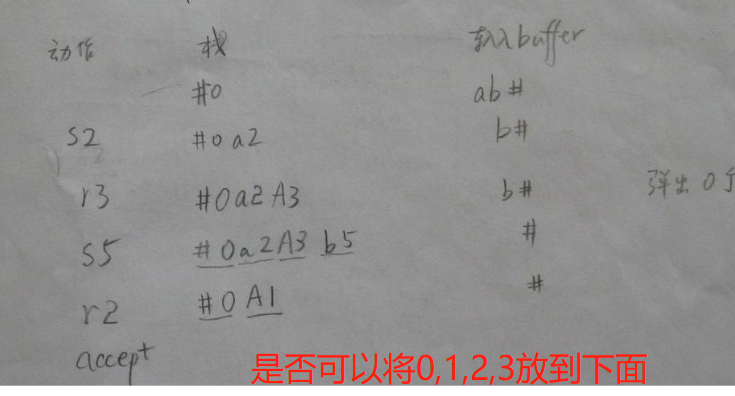 动作 栈 输入buffer
#0 ab#
s2 #0a2 b#
r3 #0a2A3 b# 弹出0
s5 #0a2A3b5 #
r2 #0A1 #
accept
是否可以将0,1,2,3放到下面